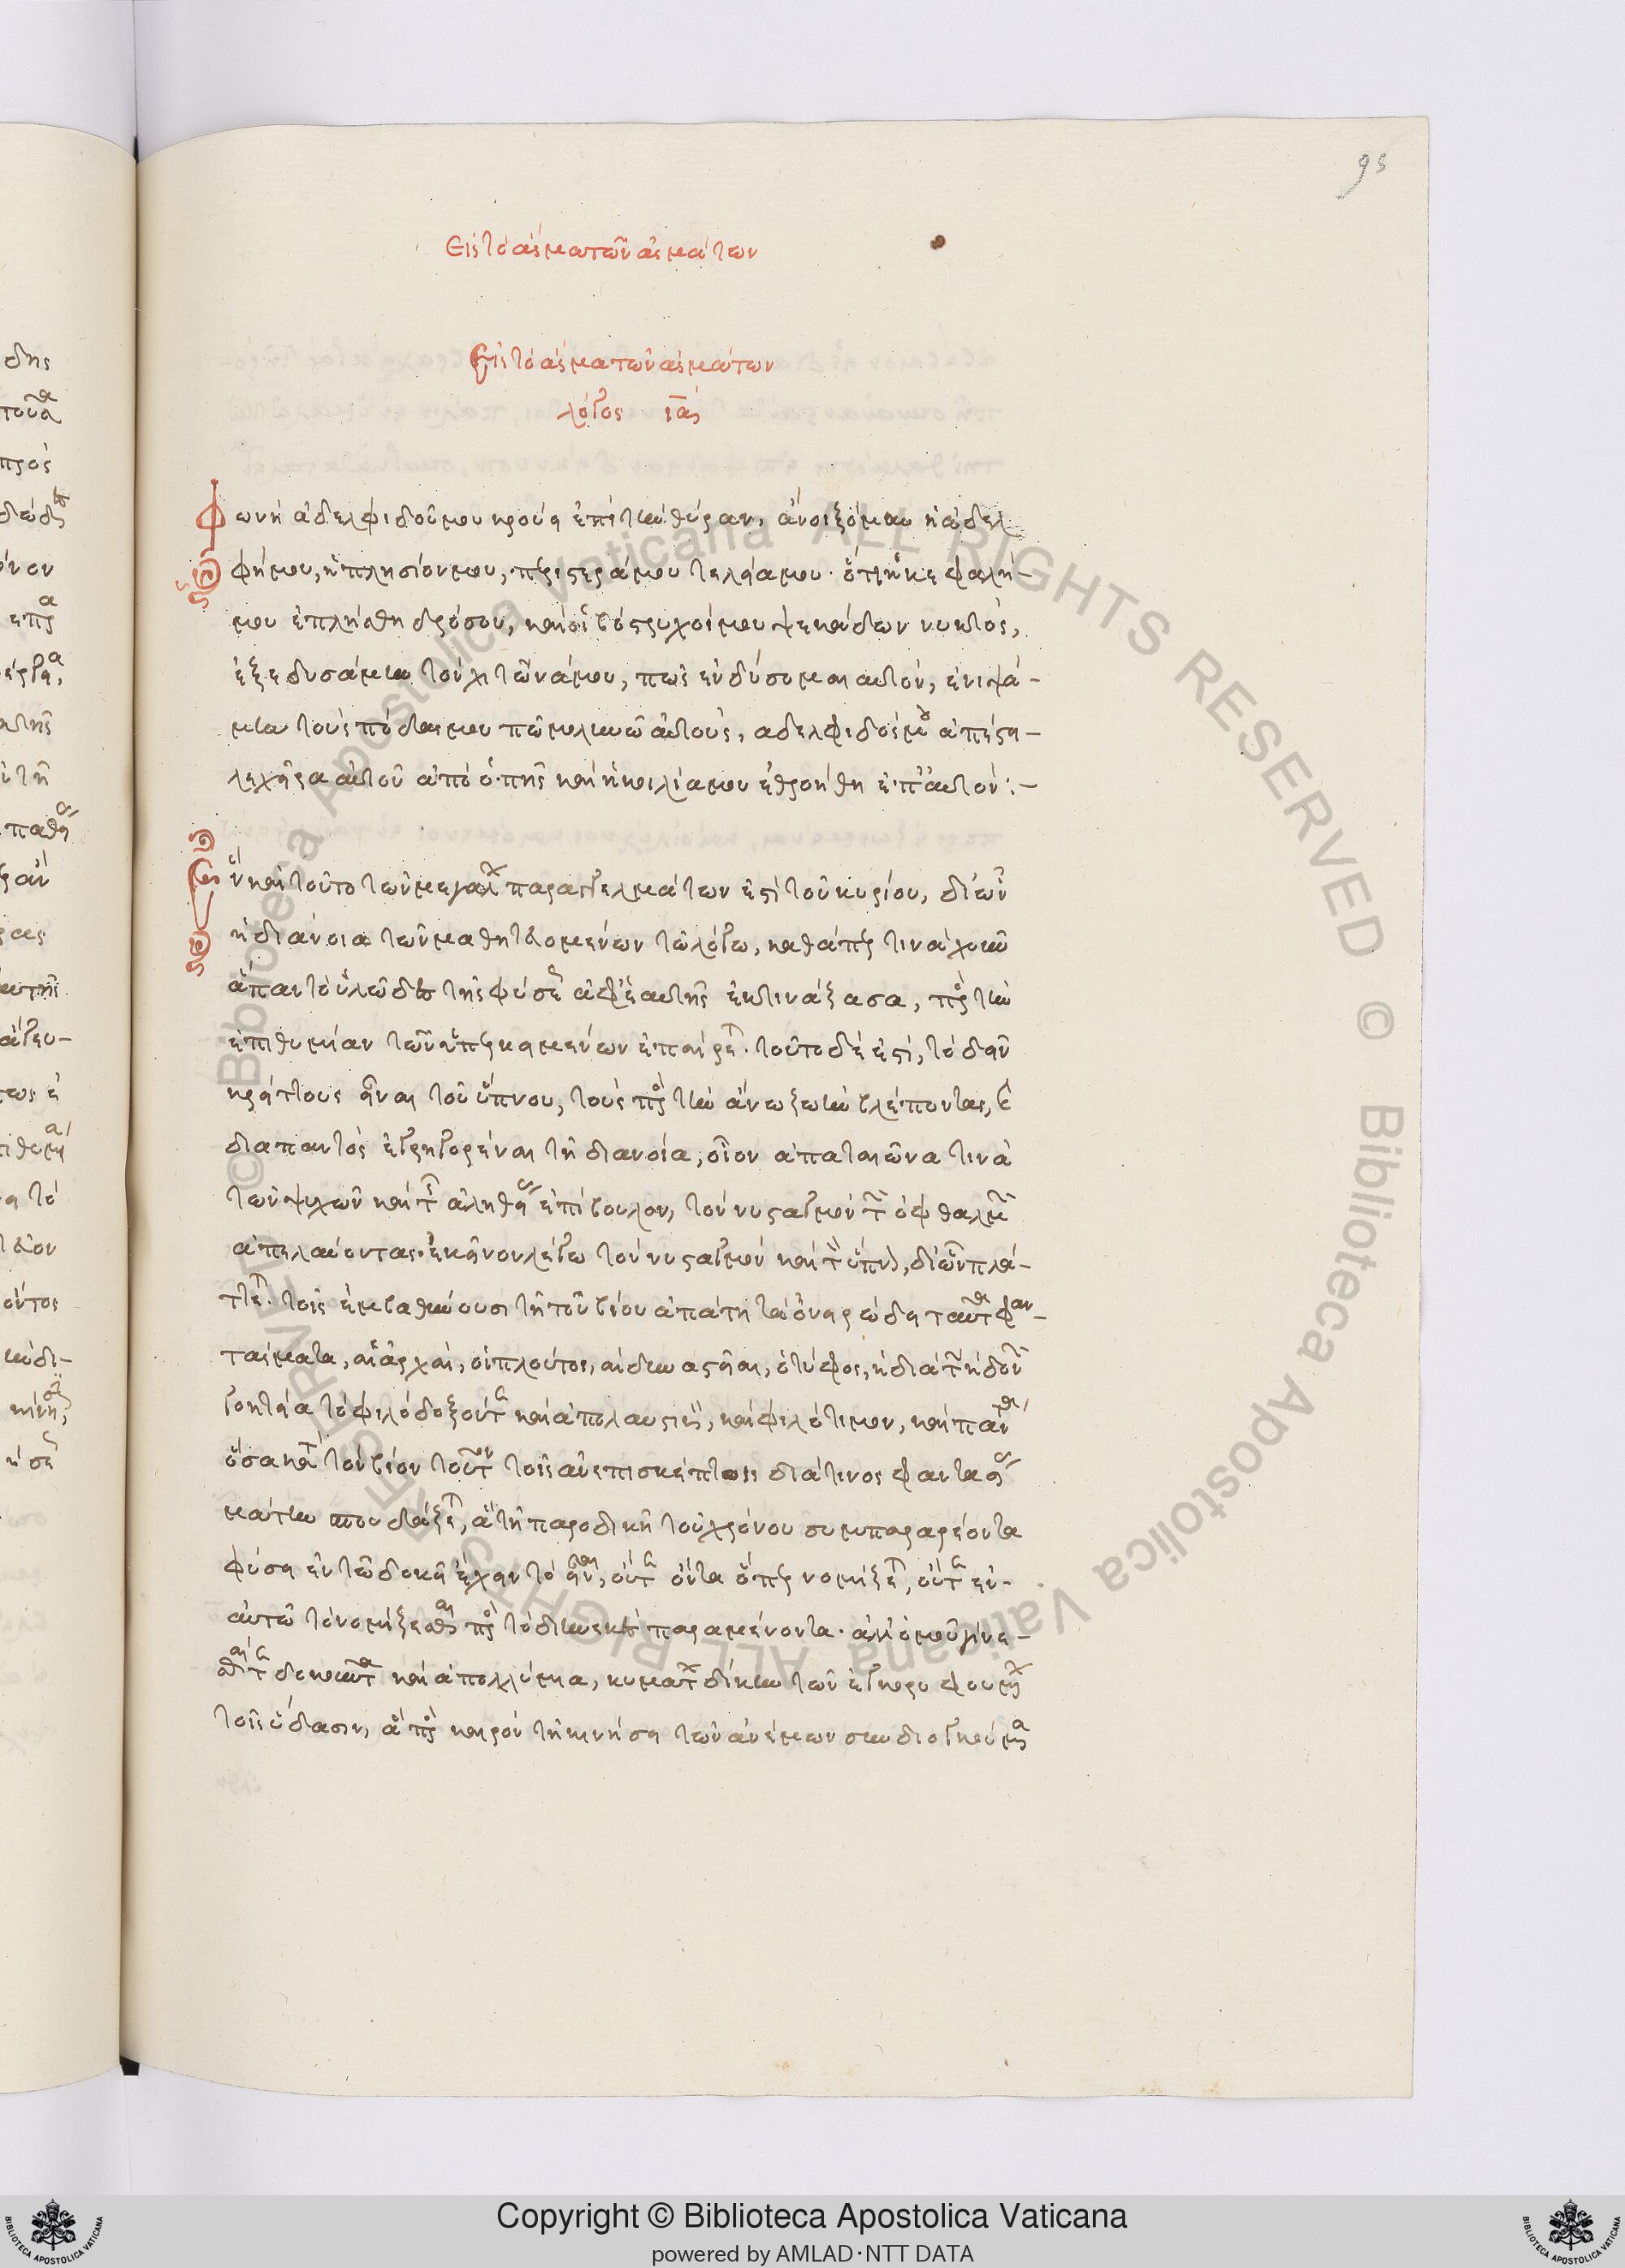 95
Εἰς τὸ ἆσμα τῶν ἀσμάτων
Εἰς τὸ ἆσμα τῶν ἀσμάτων
λόγος ια
Φωνὴ ἀδελφιδοῦ μου κρούει ἐπὶ τὴν θύραν, ἄνοιξόν μοι ἡ ἀδελ
φή μου, ἡ πλησίον μου, περιστερά μου τελεία μου· ὅτι ἡ κεφαλή
μου ἐπλήσθη δρόσου, καὶ οἱ βόστρυχοί μου ψεκάδων νυκτός,
ἐξεδυσάμην τὸν χιτῶνά μου, πῶς ἐνδύσομαι αὐτόν, ἐνιψά-
μην τοὺς πόδας μου πῶς μολυνῶ αὐτούς, ἀδελφιδός μου ἀπέστει-
λε χεῖρα αὐτοῦ ἀπὸ ὀπῆς καὶ ἡ κοιλία μου ἐθροήθη ἐπ' αὐτόν:-
Ἓν καὶ τοῦτο τῶν μεγάλων παραγγελμάτων ἐστὶ τοῦ κυρίου, δι' ὧν
ἡ διάνοια τῶν μαθητευομένων τῷ λόγῳ, καθάπερ τινὰ χοῦν
ἅπαν τὸ ὑλῶδες τῆς φύσεως ἀφ' ἑαυτῆς ἐκτινάξασα, πρὸς τὴν
ἐπιθυμίαν τῶν ὑπερκειμένων ἐπαίρεται· τοῦτο δέ ἐστι, τὸ δεῖν
κρείττους εἶναι τοῦ ὕπνου, τοὺς πρὸς τὴν ἄνω ζωὴν βλέποντας, καὶ
διαπαντὸς ἐγρηγορέναι τῇ διανοίᾳ, οἷον ἀπατεῶνα τινὰ
τῶν ψυχῶν καὶ τῆς ἀληθείας ἐπίβουλον, τὸν νυσταγμὸν τῶν ὀφθαλμῶν
ἀπελαύνοντας· ἐκεῖνον λέγω τὸν νυσταγμὸν καὶ τὸν ὕπνον, δι' ὧν πλά-
ττεται τοῖς ἐμβαθύνουσι τῇ τοῦ βίου ἀπάτῃ τὰ ὀνειρώδη ταῦτα φαν-
τάσματα, αἱ ἀρχαί, οἱ πλοῦτοι, αἱ δυναστεῖαι, ὁ τῦφος, ἡ διὰ τῶν ἡδονῶν
γοητεία τὸ φιλόδοξόν τε καὶ ἀπολαυστικόν, καὶ φιλότιμον, καὶ πάντα
ὅσα κατὰ τὸν βίον τοῦτον τοῖς ἀνεπισκέπτοις διά τινος φαντασίας
ματαίων σπουδάζεται, ἃ τῇ παροδικῇ τοῦ χρόνου συμπαραρέοντα
φύσει ἐν τῷ δοκεῖν ἔχει τὸ εἶναι, οὔτε ὄντα ὅπερ νομίζεται, οὔτε ἐν
αὐτῷ τὸ νομίζεσθαι πρὸς τὸ διηνεκὲς παραμένοντα· ἀλλ' ὁμοῦ γίνε-
σθαί τε δοκοῦντα καὶ ἀπολλύμενα, κυμάτων δίκην τῶν ἐγκορυφουμένων
τοῖς ὕδασιν, ἃ πρὸς καιρὸν τῇ κινήσει τῶν ἀνέμων συνδιογκούμενα
Copyright © Biblioteca Apostolica Vaticana
powered by AMLAD·NTT DATA